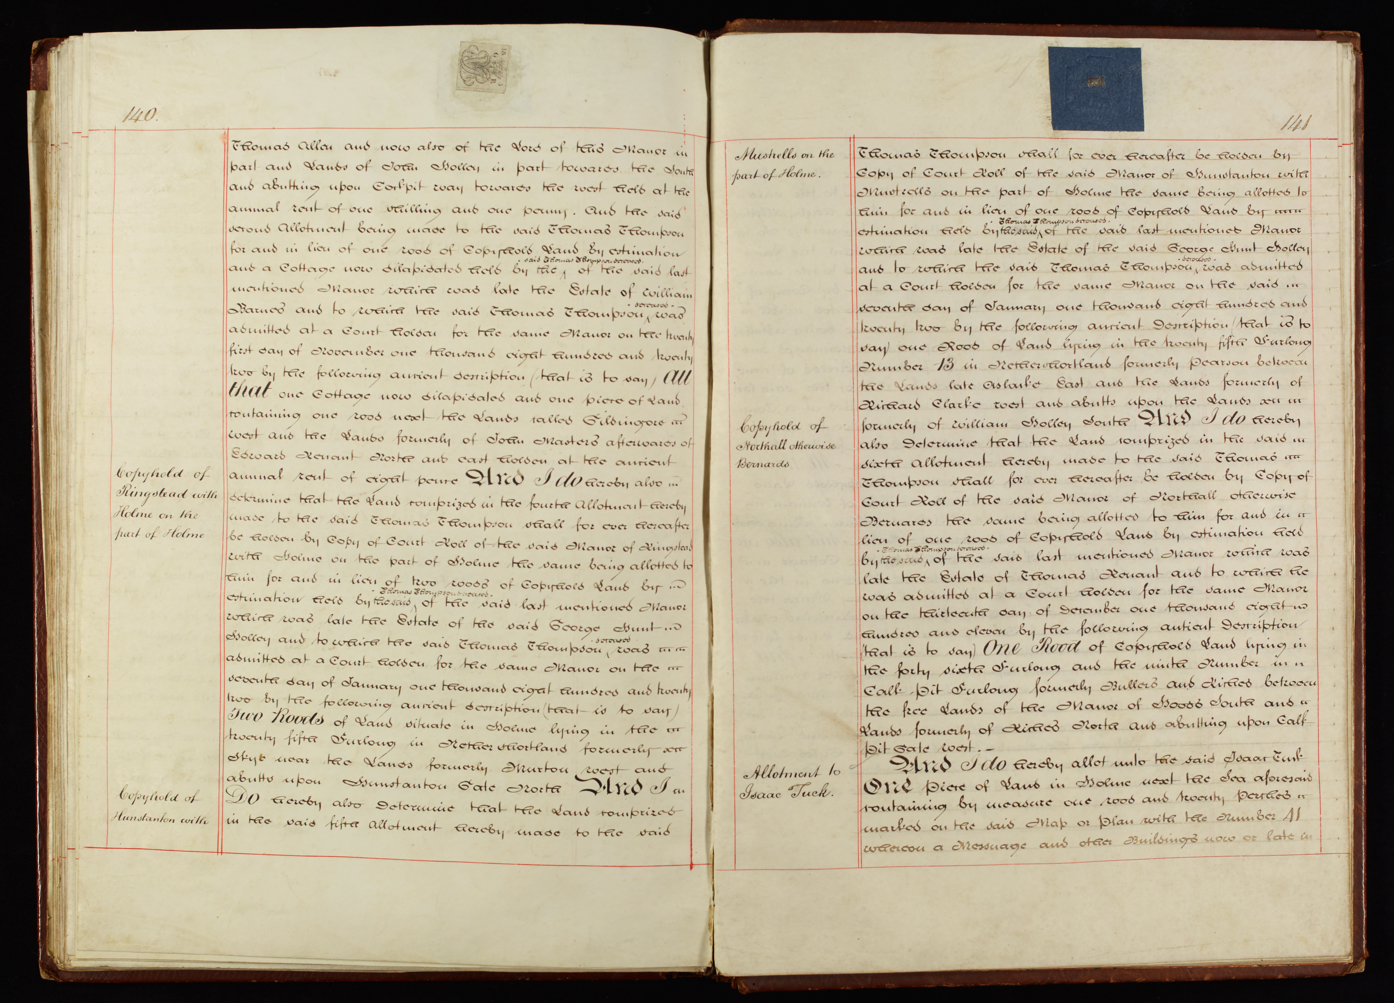 140.
Thomas Allen and now also of the Lord of this Manor in
part and Lands of John Holley in part towards the South
and abutting upon Corkpit way towards the west held at the
annual rent of one shilling and one penny. And the said
second Allotment being made to the said Thomas Thompson
for and in lieu of one rood of Copyhold Land by estimation
said Thomas Thompson deceased
and a Cottage now dilapidated held by the of the said last
mentioned Manor which was late the Estate of William
deceased
Barnes and to which the said Thomas Thompson was
admitted at a Court holden for the same Manor on the twenty
first day of November one thousand eight hundred and twenty
two by the following ancient description (that is to say) All
that one Cottage now dilapidated and one piece of Land
containing one rood next the Lands called Gildingore
west and the Lands formerly of John Masters afterwards of
Edward Renant North and east holden at the ancient
annual rent of eight pence And I do hereby also
determine that the Land comprized in the fourth Allotment hereby
made to the said Thomas Thompson shall for ever hereafter
be holden by Copy of Court Roll of the said Manor of Ringstead
with Holme on the part of Holme the same being allotted to
him for and in lieu of two roods of Copyhold Land by
Thomas Thompson deceased
estimation held by the said of the said last mentioned Manor
which was late the Estate of the said George Hunt
deceased
Holley and to which the said Thomas Thompson was
admitted at a Court holden for the same Manor on the
seventh day of January one thousand eight hundred and twenty
two by the following ancient description (that is to say)
Two Roods of Land situate in Holme lying in the
twenty fifth Furlong in Nethershortland formerly
Skyb near the Lands formerly Murton west and
abutts upon Hunstanton Gate North And I
Do hereby also Determine that the Land comprized
in the said fifth Allotment hereby made to the said
Copyhold of
Ringstead with
Holme on the
part of Holme
Copyhold of
Hunstanton with
141
Mustrells on the
part of Holme.
Thomas Thompson shall for ever hereafter be holden by
Copy of Court Roll of the said Manor of Hunstanton with
Mustrells on the part of Holme the same being allotted to
him for and in lieu of one rood of Copyhold Land by
Thomas Thompson deceased
estimation held by the said of the said last mentioned Manor
which was late the Estate of the said George Hunt Holley
deceased
and to which the said Thomas Thompson was admitted
at a Court holden for the same Manor on the said
seventh day of January one thousand eight hundred and
twenty two by the following ancient Description (that is to
say) one Rood of Land lying in the twenty fifth Furlong
Number 13 in Nethershortland formerly Pearson between
the Lands late Aslarke East and the Lands formerly of
Richard Clarke west and abutts upon the Lands
formerly of William Holley South And I do hereby
also Determine that the Land comprized in the said
sixth Allotment hereby made to the said Thomas
Thompson shall for ever hereafter be holden by Copy of
Court Roll of the said Manor of Northall otherwise
Bernards the same being allotted to him for and in
lieu of one rood of Copyhold Land by estimation held
Thomas Thompson deceased
by the said of the said last mentioned Manor which was
late the Estate of Thomas Renant and to which he
was admitted at a Court holden for the same Manor
on the thirteenth day of December one thousand eight
hundred and eleven by the following antient Description
(that is to say) One Rood of Copyhold Land lying in
the forty sixth Furlong and the ninth Number in
Calk Pit Furlong formerly Bullers and Riches between
the free Lands of the Manor of Hoods South and
Lands formerly of Riches North and abutting upon Calf
Pit Gate west.
And I do hereby allot unto the said Isaac Tuck
One Piece of Land in Holme next the Sea aforesaid
containing by measure one rood and twenty perches
marked on the said Map or Plan with the Number 11
whereon a Messuage and other Buildings now or late
Copyhold of
Northall otherwise
Bernards
Allotment to
Isaac Tuck.